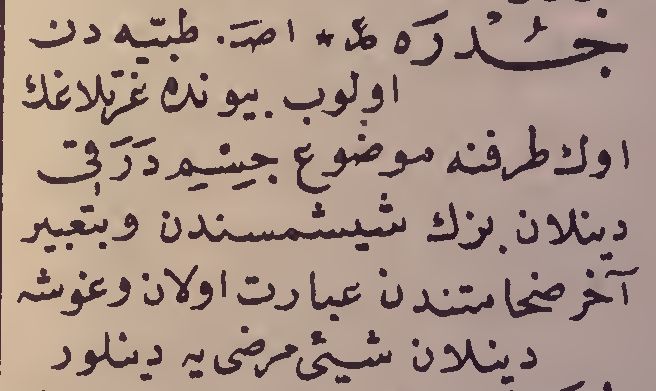 جُدَرَه ـ * اصـ. طبیّه دن
اولوب بیونده غرتلاغك
اوك طرفنه موضوع جِسْیمِ دَرَقی
دینلان بزك شیشمسندن وبتعبیر
آخر ضخامتندن عبارت اولان وغوشه
دینلان شیئی مرضی یه دینلور